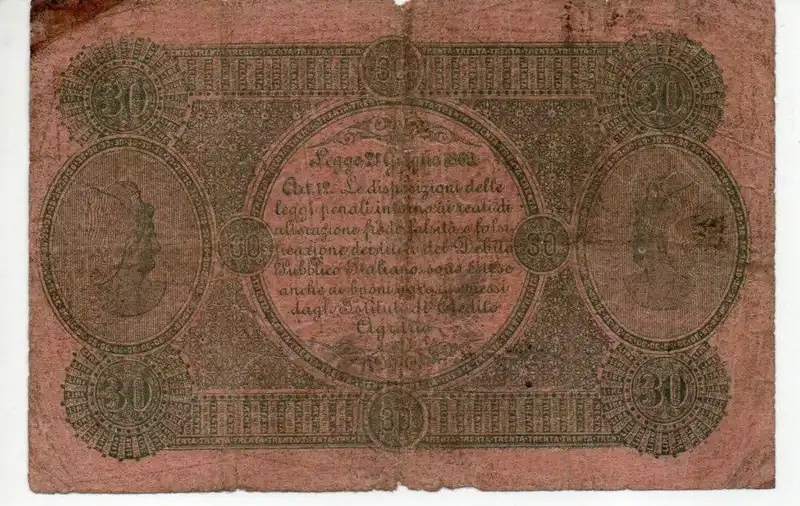 TRENTA-TRENTA-TRENTA-TRENTA
TRENTA-TRENTA-TRENTA-TRENTA
30
30
30
Legge 21 Giugno 1869
Art. 12. Le disposizioni delle
leggi penali intorno ai reati di
alterazione frode falsità e falsi
ficazione dei titoli del Debito
Pubblico Italiano sono estese
anche ai buoni
dagl'Istituti di Credito
Agrario
30
30
30
30
30
TRENTA-TRENTA-TRENTA-TRENTA
TRENTA-TRENTA-TRENTA-TRENTA